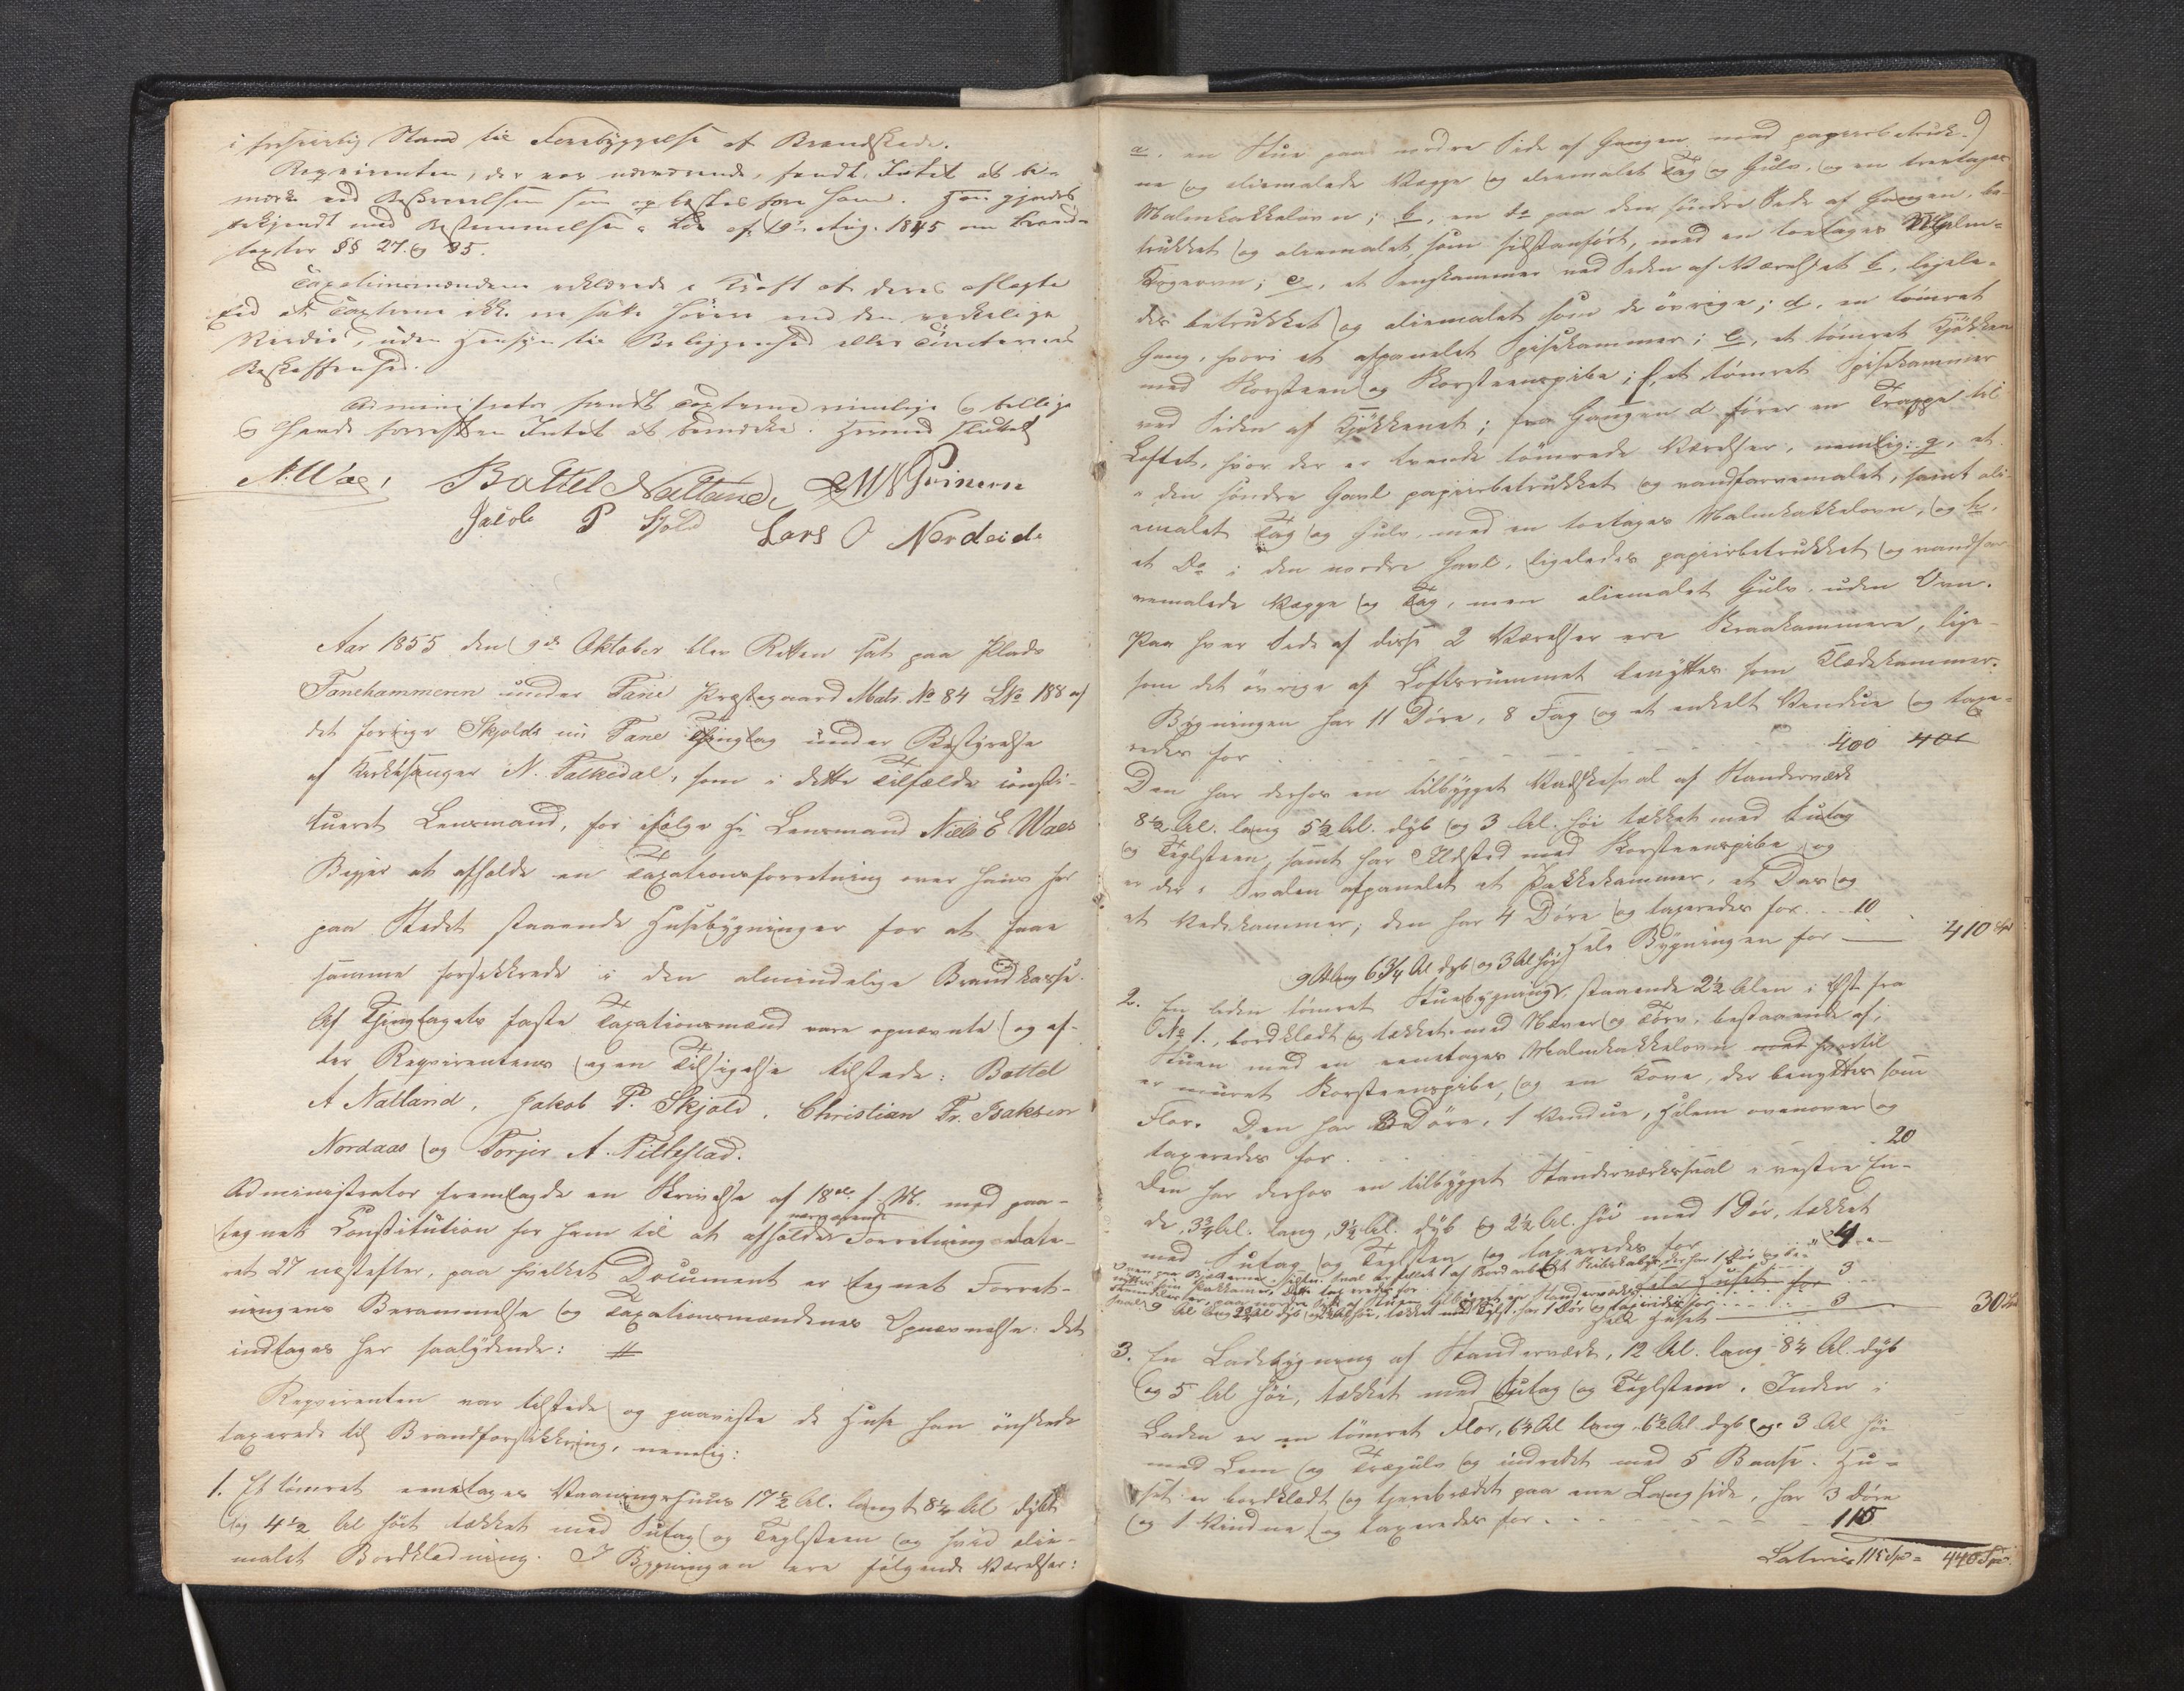 i forsvarlig Stand til Forebyggelse af Brandskade.
Reqvirenten, der var nærværende, fandt Intet at be-
mærke ved Beskrivelsen som oplæstes for ham. Han gjordes
bekjendt med Bestemmelsen i Lov af 19de Aug. 1845 om Brand-
taxter §§ 27. og 35.
Taxationsmændene erklærede i Kraft af deres aflagte
Eed at Taxterne ikke ere satte høiere end den virkelige
Værdie, uden Hensyn til Beliggenhed eller Tomternes
Beskaffenhed.
Administrator fandt Taxterne rimelige og billige
og havde forresten Intet at bemærke. Hermed sluttet
N. Wæs, Battel Natland,
Jacob P Skjold Lars O Nordeide
Aar 1855 den 9de Oktober blev Retten sat paa Plads
Fanehammeren under Fane Præstegaard Matr. No 84 LNo 188 af
det forrige Skjolds nu Fane Thinglag under Bestyrelse
af Kirkesanger N. Palkedal, som i dette Tilfælde consti-
tueret Lensmand, for ifølge Hr Lensmand Niels E Wæs
Begjær at afholde en Taxationsforretning over hans her
paa Stedet staaende Husebygninger for at faae
samme forsikkrede i den almindelige Brandkasse.
Af Thinglagets faste Taxationsmænd vare opnævnte og ef-
ter Reqvirentens egen Tilsigelse tilstede: Battel
A Natland, Jakob P. Skjold, Christian Fr. Isaksen
Nordaas og Torjer A. Titlestad.
Administrator fremlagde en Skrivelse af 18de f. M. med paa-
nærværende
tegnet Constitution for ham til at afholde Forretning date-
ret 27 næstefter, paa hvilket Document er tegnet Forret-
ningens Berammelse og Taxationsmændenes Opnævnelse: det
indtages her saalydende: #
Reqvirenten var tilstede og paaviste de Huse han ønskede
taxerede til Brandforsikkring, nemlig:
1. Et tømret eenetages Vaaningshuus 17½ Al. langt 8¼ Al dybt
og 4½ Al høit tækket med Sutag og Teglsteen og hvid olie-
malet Bordklædning. I Bygningen ere følgende Værelser:
9
a. en Stue paa nordre Side af Gangen med papiirbetrukk-
ne og oliemalede Vægge og oliemalet Tag og Gulv, og en treetages
Malmkakkelovn; b, en do paa den søndre Side af Gangen, be-
trukket og oliemalet, som sidstanført, med en toetages Malm-
Kogeovn; c, et Sengkammer ved Siden af Værelset b, ligele-
des betrukket og oliemalet som de øvrige; d, en tømret
Gang, hvori et afpanelet Spisekammer; e, et tømret Kjøkken
med Skorsteen og Skorsteenspibe; f, et tømret Spisekammer
ved Siden af Kjøkkenet; fra Gangen d fører en Trappe til
Loftet, hvor der er tvende tømrede Værelser, nemlig: g, et
i den søndre Gavl papiirbetrukket og vandfarvemalet, samt oli-
emalet Tag og Gulv, med en toetages Malmkakkelovn, og h,
et Do i den nordre Gavl, ligeledes papiirbetrukket og vandfar-
vemalede Vægge og Tag, men oliemalet Gulv, uden Ovn.
Paa hver Side af disse 2 Værelser ere Kraakammere, lige-
som det øvrige af Loftsrummet benyttes som Klædekammer.
Bygningen har 11 Døre, 8 Fag og et enkelt Vindue og taxe-
redes for 400 400
Den har derhos en tilbygget Vadskesval af Standerværk
8½ Al. lang 5½ Al. dyb og 3 Al. høi tækket med Sutag
og Teglsteen, samt har Ildsted med Skorsteenspibe, og
er der i Svalen afpanelet et Pakkekammer, et Das og
et Vedekammer; den har 4 Døre og taxeredes for 10
Hele Bygningen for 410 Spd
9 Al lang 6¾ Al dyb og 3 Al høi
2. En liden tømret Stuebygning, staaende 2½ Alen i Øst fra
No 1., bordklædt og tækket med Næver og Tørv, bestaaende af;
Stuen med en eenetages Malmkakkelovn med hvortil
er muret Skorsteenspibe, og en Kove, der benyttes som
Flor. Den har 3 Døre, 1 Vindue, Hjlem ovenover og
taxeredes for 20
Den har derhos en tilbygget Standerværkssval i vestre En-
de, 3¾ Al. lang, 9½ Al. dyb og 2½ Al. høi med 1 Dør, tækket
med Sutag og Teglsten og taxeredes for 4
3
Hele Huset for
3
Hele Huset 30 Spd
3. En Ladebygning af Standerværk, 12 Al. lang 8¼ Al. dyb
og 5 Al høi, tækket med Sutag og Teglsteen. Inden i
Laden er en tømret Flor, 6¼ Al lang 6½ Al. dyb og 3 Al høi
med Lem og Trægulv og indredet med 5 Baase. Hu-
set er bordklædt og tjærebrædet paa ene Langside, har 3 Døre
og 1 Vindue og taxeredes for 115
Lateris 115 Spd = 440 Spd